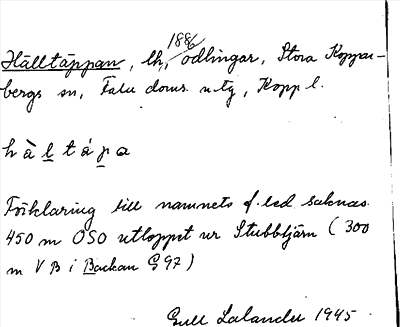 Hälltäppan, lh, 1886 odlingar, Stora Koppar-
bergs sn, Falu doms. ntg, Kopp l.
h à l t á p a
Förklaring till namnets f. led saknas.
450 m OSO utloppet ur Stubbtjärn (300
m V B i Backan G97)
Gull Lalander 1945.